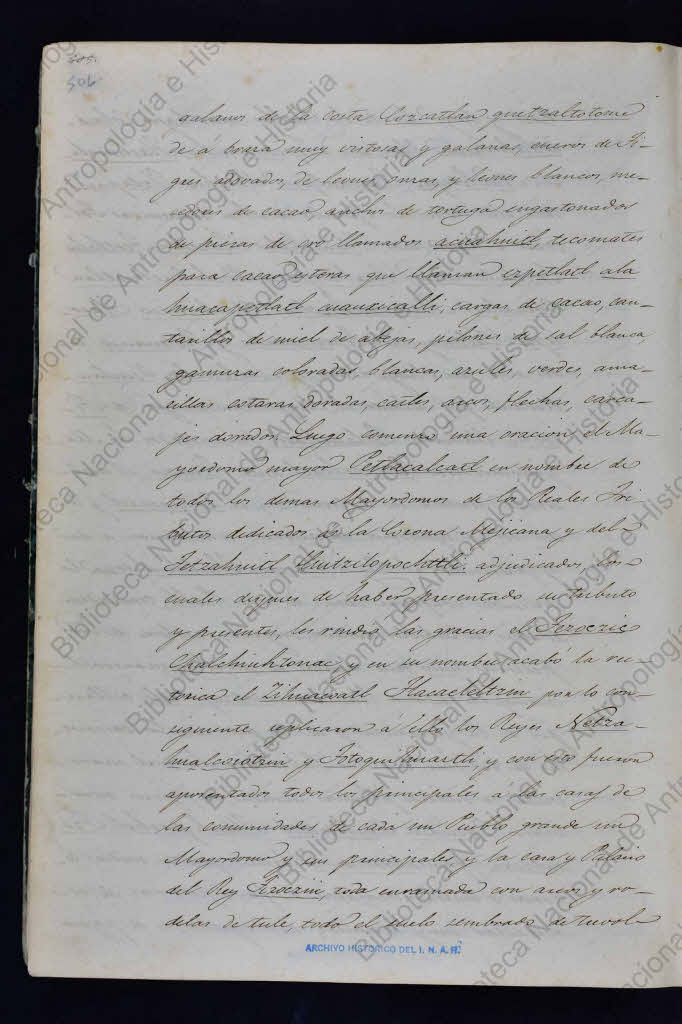 galanos de la costa Cozcatlan quetzaltotome
de a braza muy vistosas y galanas, cueros de Ti-
gres adovados, de leones onzas, y leones blancos, me-
cedores de cacao, anchos de tortuga engastonados
de piezas de oro llamados acuahuitl, tecomates
para cacao, esteras que llaman ezpetlatl ala
huacapetlatl cuauxicalli, cargas de cacao, can-
tarillos de miel de abejas, pilones de sal blanca,
gamuzas coloradas, blancas, azules, verdes, ama-
rillas, cotaras doradas, cactles, arcos, flechas, carca-
jes dorados. Luego comenzo una oracion, el Ma-
yordomo mayor Petlacalcatl en nombre de
todos los demas Mayordomos de los Reales Tri-
butos dedicados á la Corona Mejicana y del
Tetzahuitl Huitzilopochtli, adjudicados, los
cuales despues de haber presentado su tributo
y presentes, les rindio las gracias el Tezozic
Chalchiuhtonac y en su nombre acabó la re-
torica el Zihuacoatl Tlacaeleltzin por lo con-
siguiente replicaron á ello los Reyes Netza-
hualcoiotzin y Totoquihuaztli, y con esto fueron
aposentados todos los principales á las casas de
las comunidades de cada un Pueblo grande un
Mayordomo y sus principales, y la casa y Palacio
del Rey Tizoczic, toda enramada con arcos y ro-
delas de tule, todo el suelo sembrado de trevol
ARCHIVO HISTORICO DEL I. N. A. H.
Biblioteca Nacional de Antropología e Historia